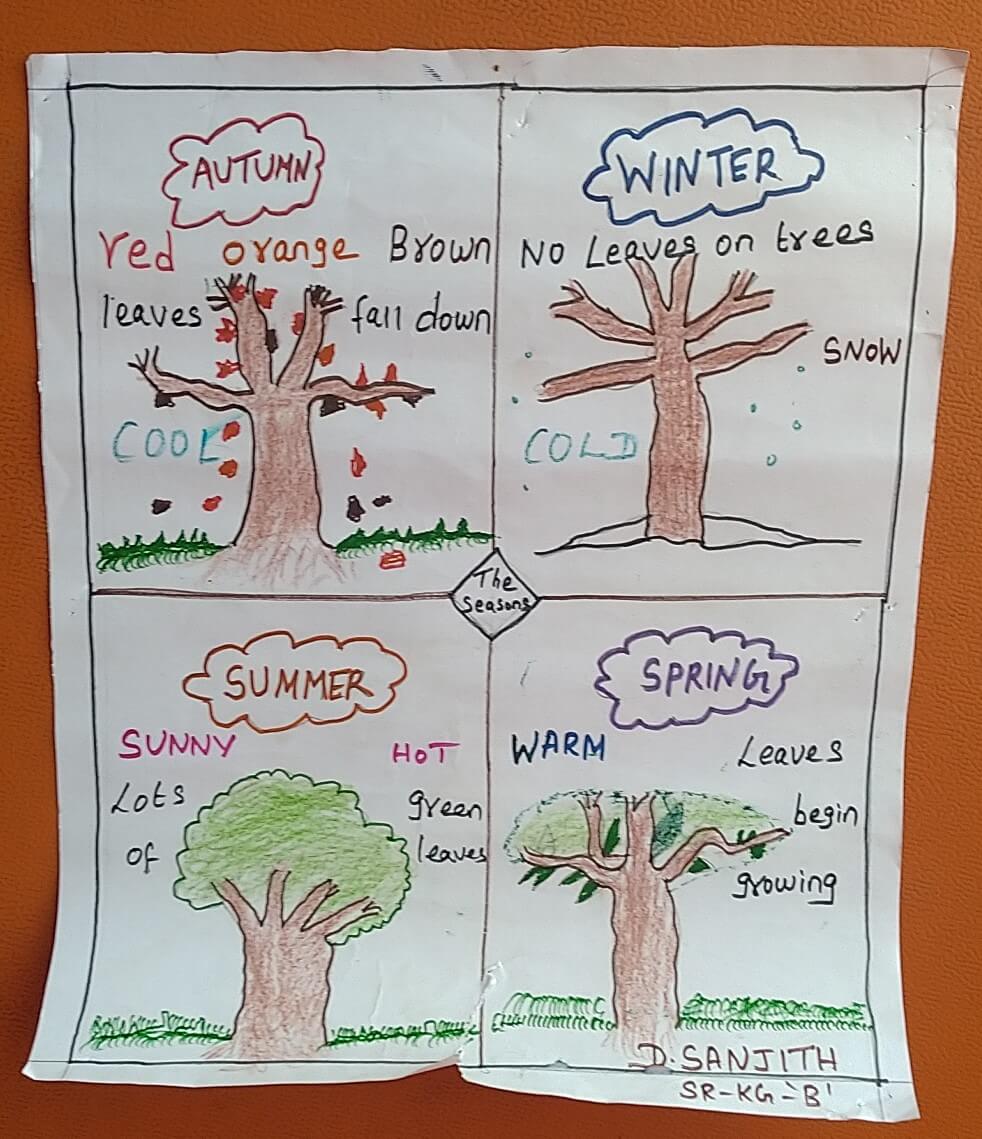 AUTUMN
red orange Brown
leaves fall down
COOL
WINTER
No Leaves on trees
SNOW
COLD
The
Seasons
SUMMER
SUNNY HOT
Lots green
of leaves
SPRING
WARM Leaves
begin
growing
D. SANJITH
SR-KG-'B'